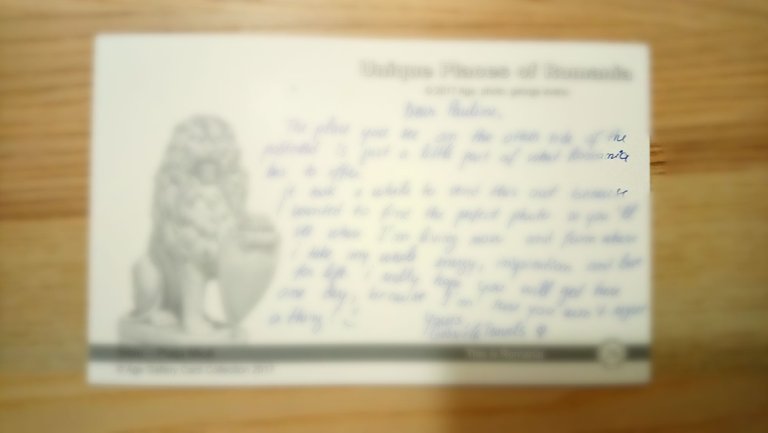 Unique Places of Romania
Dear Pauline,
The place you see on the other side of the
postcard is just a little part of what Romania
has to offer.
It took a while to send this card because
I wanted to find the perfect photo so you'll
see where I'm living now and from where
I take my whole energy, inspiration and love
for life. I really hope you will get here
one day, because I'm sure you won't regret
a thing! :)
Yours,
This is Romania